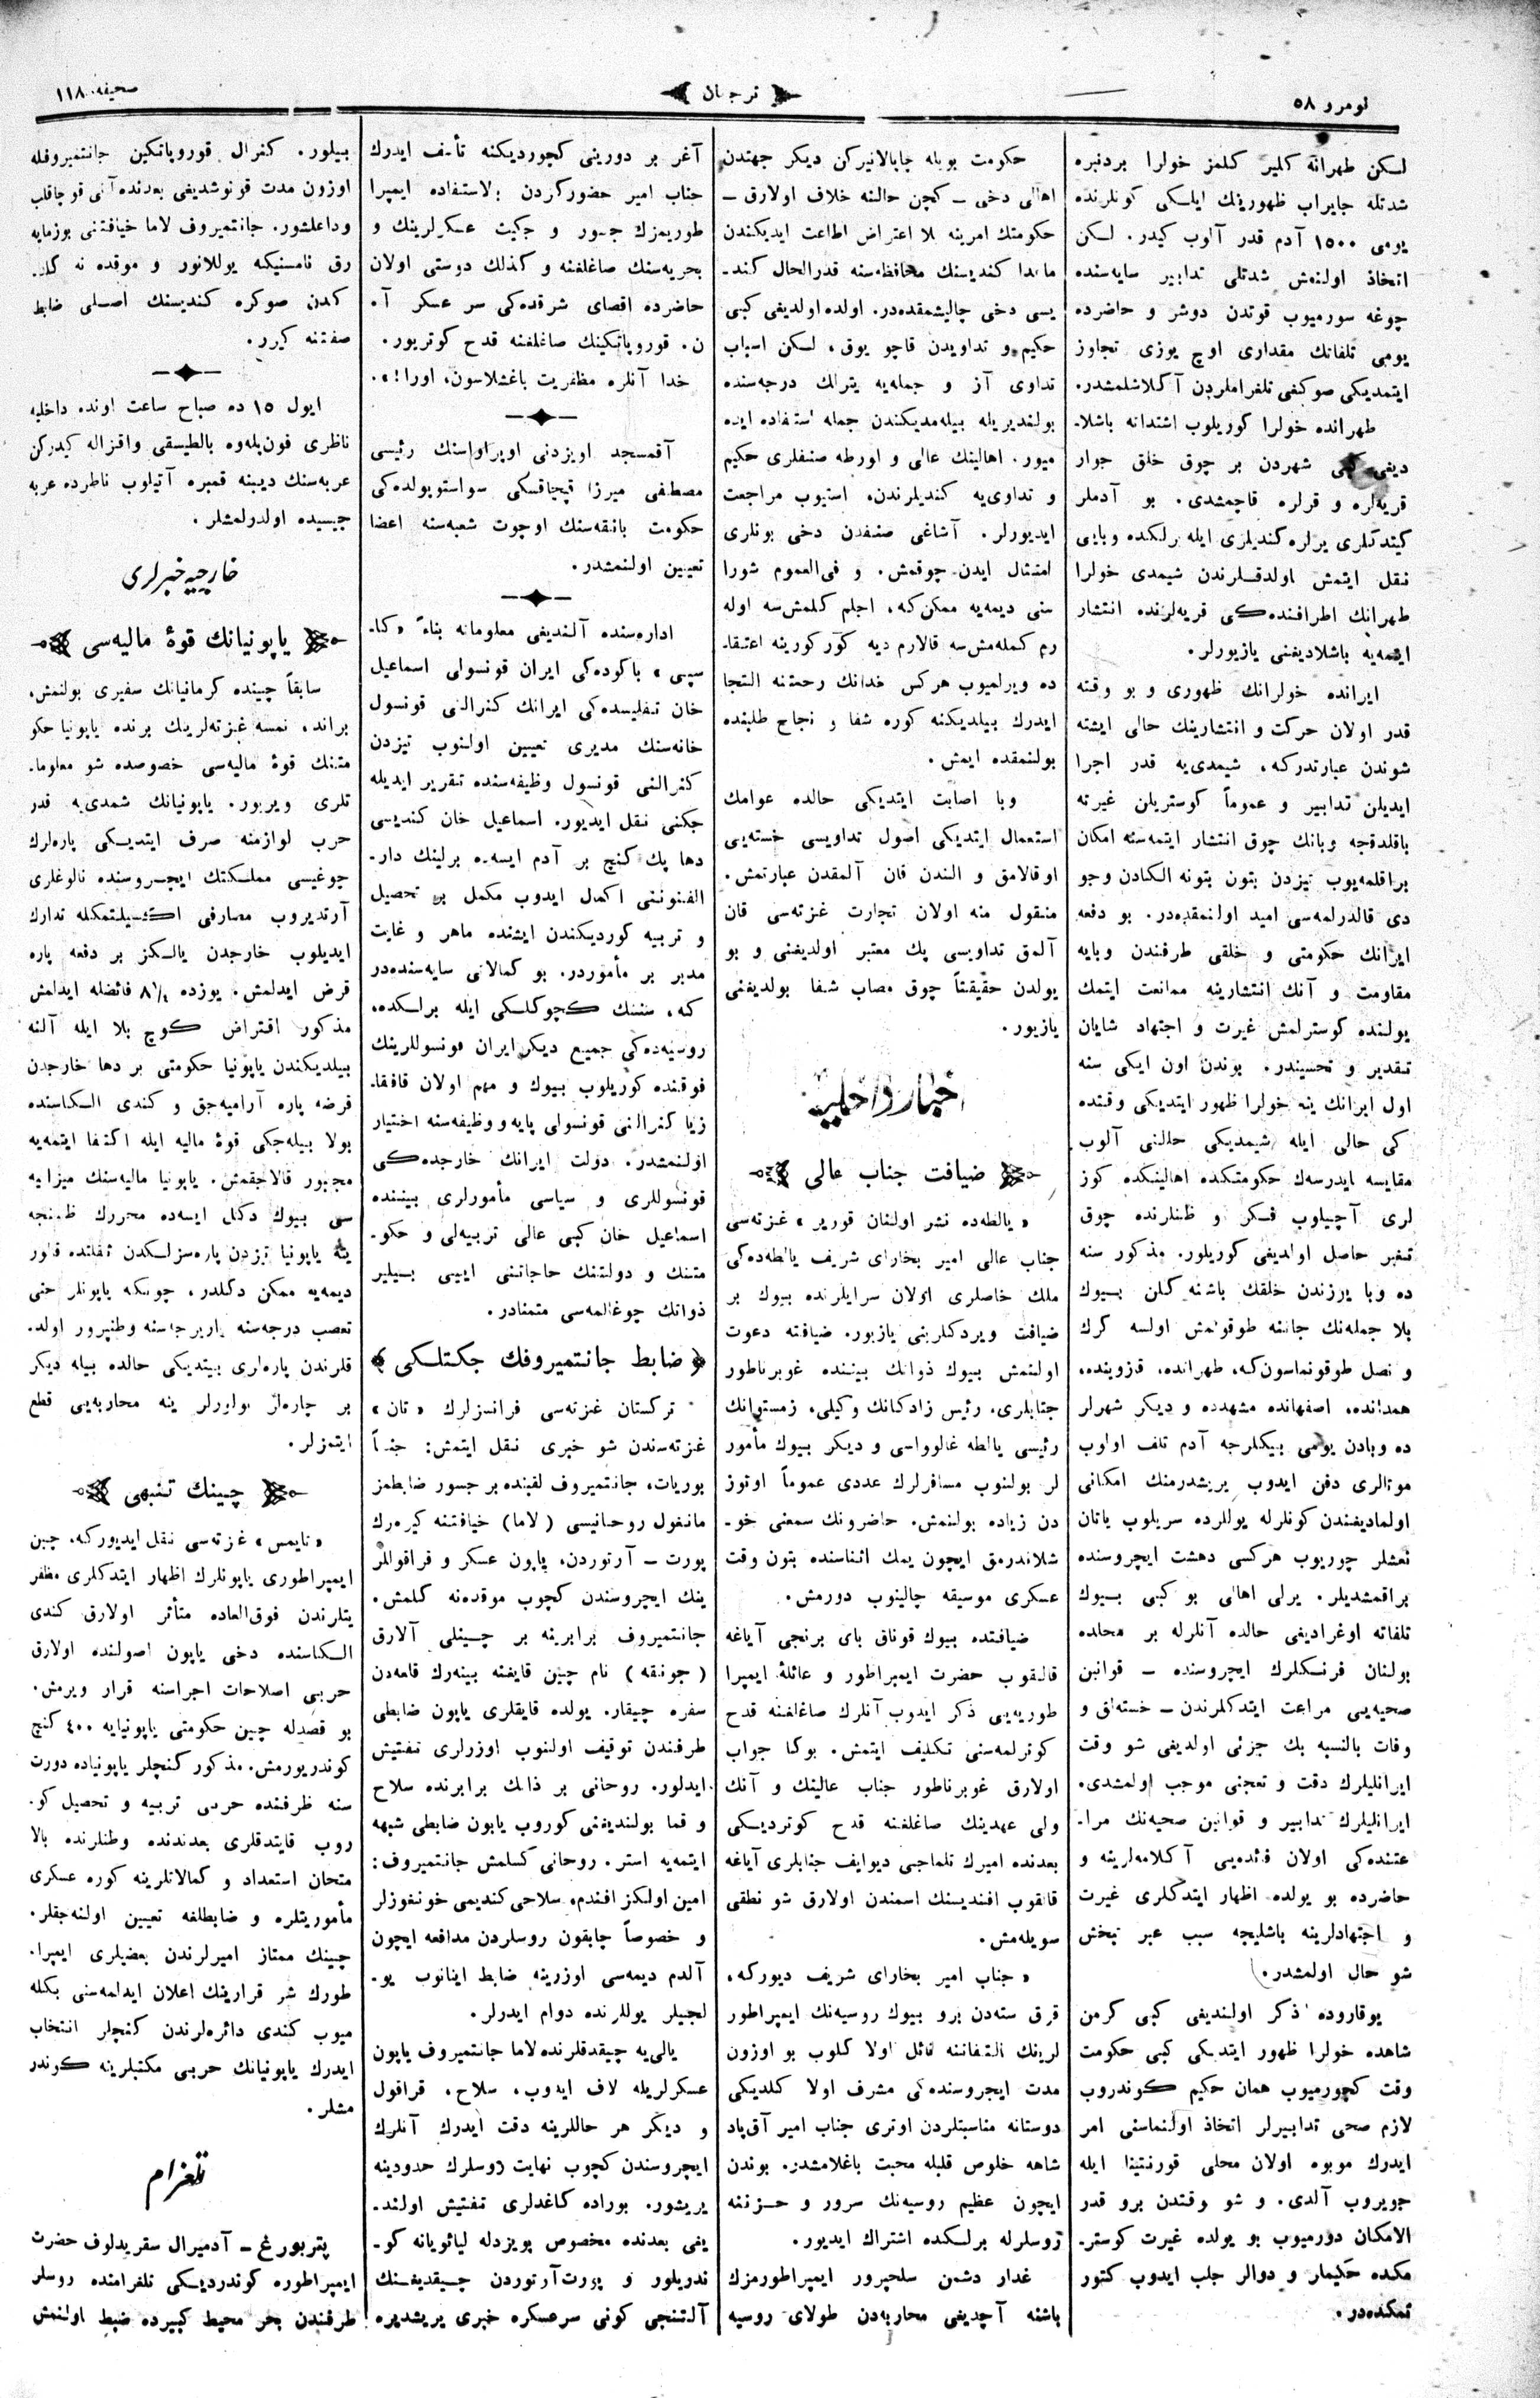 نومرو ٥٨
ترجمان
صحیفه ١١٨
لسکن طهرانه کلیر کلمز خولرا بردنبره
شدتله جایراب ظهورینك ایلسکی کونلرنده
یومی ١٥٠٠ آدم قدر آلوب کیدر. لسکن
اتخاذ اولنمش شدتلی تدابیر سایه‌سنده
چوغه سورمیوب قوتدن دوشر و حاضرده
یومی تلفاتك مقداری اوچ یوزی تجاوز
ایتمدیکی صوکغی تلغراملردن آکلاشلمشدر.
طهرانده خولرا کوریلوب اشتدانه باشلا-
دیغی کبی شهردن بر چوق خلق جوار
قریه‌لره و قرلره قاچمشدی. بو آدملر
کیتدکلری یرلره کندیلری ایله برلکده وبایی
نقل ایتمش اولدقلرندن شیمدی خولرا
طهرانك اطرافنده‌کی قریه‌لرنده انتشار
ایتمه‌یه باشلادیغنی یازیورلر.
ایرانده خولرانك ظهوری و بو وقته
قدر اولان حرکت و انتشارینك حالی ایشته
شوندن عبارتدرکه، شیمدی‌یه قدر اجرا
ایدیلن تدابیر و عموماً کوستریلن غیرته
باقلدقجه وبانك چوق انتشار ایتمه‌سنه امکان
براقلمه‌یوب تیزدن بتون بتونه الکادن وجو
دی قالدرلمه‌سی امید اولنمقده‌در. بو دفعه
ایرانك حکومتی و خلقی طرفندن وبایه
مقاومت و آنك انتشارینه ممانعت ایتمك
یولنده کوسترلمش غیرت و اجتهاد شایان
تقدیر و تحسیندر. بوندن اون ایکی سنه
اول ایرانك ینه خولرا ظهور ایتدیکی وقتده
کی حالی ایله شیمدیکی حالنی آلوب
مقایسه ایدرسه‌ك حکومتکده اهالینکده کوز
لری آچیلوب فسکر و ظنلرنده چوق
تغییر حاصل اولدیغی کوریلور. مذکور سنه
ده وبا یرزندن خلقك باشنه کلن بیوك
بلا جمله‌نك جاننه طوقونمش اولسه کرك
و نصل طوقونماسون‌که، طهرانده، قزوینده،
همدانده، اصفهانده مشهدده و دیکر شهرلر
ده وبادن یومی بیکلرجه آدم تلف اولوب
موتالری دفن ایدوب یریشدرمنك امکانی
اولمادیغندن کونلرله یوللرده سریلوب یاتان
نعشلر چوریوب هرکسی دهشت ایچروسنده
براقمشدیلر. یرلی اهالی بو کبی بیوك
تلفاته اوغرادیغی حالده آنلرله بر محلده
بولنان فرنسکلرك ایچروسنده – قوانین
صحیه‌یی مراعت ایتدکلرندن – خسته‌لق و
وفات بالنسبه بك جزئی اولدیغی شو وقت
ایرانلیلرك دقت و تعجبنی موجب اولمشدی.
ایرانلیلرك تدابیر و قوانین صحیه‌نك مرا-
عتنده‌کی اولان فائده‌یی آکلامه‌لرینه و
حاضرده بو یولده اظهار ایتدکلری غیرت
و اجتهادلرینه باشلیجه سبب عبر تبخش
شو حال اولمشدر.
یوقاروده ذکر اولندیغی کبی کرمن
شاهده خولرا ظهور ایتدیکی کبی حکومت
وقت کچورمیوب همان حکیم کوندروب
لازم صحی تدابیرلر اتخاذ اولنماسنی امر
ایدرك موبوه اولان محلی قورنتینا ایله
جویروب آلدی. و شو وقتدن برو قدر
الامکان دورمیوب بو یولده غیرت کوستر-
مکده حکیمار و دوالر جلب ایدوب کتور
تمکده‌در.
حکومت بویله چابالانیرکن دیکر جهتدن
اهالی دخی – کچن حالنه خلاف اولارق –
حکومتك امرینه بلا اعتراض اطاعت ایدیکندن
ماعدا کندیسنك محافظه‌سنه قدرالحال کند-
یسی دخی چالیشمقده‌در. اولده اولدیغی کبی
حکیم و تداویدن قاچو یوق، لسکن اسباب
تداوی آز و جمله‌یه یترلك درجه‌سنده
بولندیریله بیله‌مدیکندن جمله استفاده ایده
میور. اهالینك عالی و اورطه صنفلری حکیم
و تداوی‌یه کندیلرندن، استیوب مراجعت
ایدیورلر. آشاغی صنفدن دخی بونلری
امتثال ایدن چوقمش. و فی‌العموم شورا
سنی دیمه‌یه ممکن‌که، اجلم کلمش‌سه اوله
رم کمله‌مش‌سه قالارم دیه کور کورینه اعتقا-
ده ویرلمیوب هرکس خدانك رحمتنه التجا
ایدرك بیلدیکنه کوره شفا و نجاح طلبنده
بولنمقده ایمش.
وبا اصابت ایتدیکی حالده عوامك
استعمال ایتدیکی اصول تداویسی خسته‌یی
اوقالامق و الندن قان آلمقدن عبارتمش.
منقول منه اولان تجارت غزته‌سی قان
آلمق تداویسی پك معتبر اولدیغنی و بو
یولدن حقیقتاً چوق مصاب شفا بولدیغنی
یازیور.
اخبار داخلیه
ضیافت جناب عالی
« یالطه‌ده نشر اولنان قوریر » غزته‌سی
جناب عالی امیر بخارای شریف یالطه‌ده‌کی
ملك خاصلری اولان سرایلرنده بیوك بر
ضیافت ویردکلرینی یازیور. ضیافته دعوت
اولنمش بیوك ذواتك بیننده غوبرناطور
جنابلری، رئیس زادکانك وکیلی، زمستوانك
رئیسی یالطه غالوواسی و دیکر بیوك مأمور
لر بولنوب مسافرلرك عددی عموماً اوتوز
دن زیاده بولنمش. حاضرونك سمعنی خو-
شلاندرمق ایچون یمك اثناسنده بتون وقت
عسکری موسیقه چالینوب دورمش.
ضیافتده بیوك قوناق بای برنجی آیاغه
قالقوب حضرت ایمپراطور و عائلهٔ ایمپرا
طوریه‌یی ذکر ایدوب آنلرك صاغلغنه قدح
کوترلمه‌سنی تکلیف ایتمش. بوکا جواب
اولارق غوبرناطور جناب عالینك و آنك
ولی عهدینك صاغلغنه قدح کوتردیسکی
بعدنده امیرك تلماجی دیوایف جنابلری آیاغه
قالقوب افندیسنك اسمندن اولارق شو نطقی
سویله‌مش.
« جناب امیر بخارای شریف دیورکه،
قرق سته‌دن برو بیوك روسیه‌نك ایمپراطور
لرینك التفاتنه نائل اولا کلوب بو اوزون
مدت ایچروسنده‌کی مشرف اولا کلدیکی
دوستانه مناسبتلردن اوتری جناب امیر آق‌پاد
شاهه خلوص قلبله محبت باغلامشدر. بوندن
ایچون عظیم روسیه‌نك سرور و حزننه
روسلرله برلسکده اشتراك ایدیور.
غدار دشمن سلحپرور ایمپراطورمزك
باشنه آچدیغی محاربه‌دن طولای روسیه
آغر بر دورینی کچوردیکنه تأسف ایدرك
جناب امیر حضورکزدن بلاستفاده ایمپرا
طوریمزك جسور و جکیت عسکرلرینك و
بحریه‌سنك صاغلغنه و کذلك دوستی اولان
حاضرده اقصای شرقده‌کی سر عسکر آ.
ن. قوروپاتکینك صاغلغنه قدح کوتریور.
خدا آنلره مظفریت باغشلاسون، اورا!».
آقمسجد اویزدنی اوپراواسنك رئیسی
مصطفی میرزا قپچاقسکی سواستوپولده‌کی
حکومت بانقه‌سنك اوچوت شعبه‌سنه اعضا
تعیین اولنمشدر.
اداره‌سنده آلندیغی معلوماته بناءً «کا-
سپی» باکوده‌کی ایران قونسولی اسماعیل
خان تفلیسده‌کی ایرانك کنرالنی قونسول
خانه‌سنك مدیری تعیین اولنوب تیزدن
کنرالنی قونسول وظیفه‌سنده تقریر ایدیله
جکنی نقل ایدیور. اسماعیل خان کندیسی
دها پك کنج بر آدم ایسه‌ده برلینك دار-
الفنوننی اکمال ایدوب مکمل بر تحصیل
و تربیه کوردیکندن ایشنده ماهر و غایت
مدبر بر مأموردر. بو کمالاتی سایه‌سنده‌در
که، سننك کچوکلسکی ایله برلسکده،
روسیه‌ده‌کی جمیع دیکر ایران قونسوللرینك
فوقنده کوریلوب بیوك و مهم اولان قافقا-
زیا کنرالنی قونسولی پایه و وظیفه‌سنه اختیار
اولنمشدر. دولت ایرانك خارجده‌کی
قونسوللری و سیاسی مأمورلری بیننده
اسماعیل خان کبی عالی تربیه‌لی و حکو-
متنك و دولتنك حاجاتنی اییی بیلیر
ذواتك چوغالمه‌سی متمنادر.
﴿ ضابط جانتمیروفك جکتلکی ﴾
ترکستان غزته‌سی فرانسزلرك «تان»
غزته‌سندن شو خبری نقل ایتمش: جنساً
بوریات، جانتمیروف لقبنده بر جسور ضابطمز
مانغول روحانیسی (لاما) خیافتنه کیره‌رك
پورت – آرتوردن، یاپون عسکر و قراقوللر
ینك ایچروسندن کچوب موقدنه کلمش.
جانتمیروف برابرینه بر چینلی آلارق
(جونقه) نام چین قایغنه بینه‌رك قلعه‌دن
سفره چیقار. یولده قایقلری یاپون ضابطی
طرفندن توقیف اولنوب اوزرلری تفتیش
ایدلور. روحانی بر ذاتك برابرنده سلاح
و قما بولندیغنی کوروب یاپون ضابطی شبهه
ایتمه‌یه استر. روحانی کسلمش جانتمیروف:
امین اولکز افندم، سلاحی کندیمی خونغوزلر
و خصوصاً چابقون روسلردن مدافعه ایچون
آلدم دیمه‌سی اوزرینه ضابط اینانوب یو-
لجیلر یوللرنده دوام ایدرلر.
یالی‌یه چیقدقلرنده لاما جانتمیروف یاپون
عسکرلریله لاف ایدوب، سلاح، قراقول
و دیکر هر حاللرینه دقت ایدرك آنلرك
ایچروسندن کچوب نهایت روسلرك حدودینه
یریشور. بوراده کاغدلری تفتیش اولند-
یغی بعدنده مخصوص پویزدله لیائویانه کو-
ندریلور و پورت‌آرتوردن چیقدیغنك
آلتنجی کونی سرعسکره خبری یریشدیره
بیلور. کنرال قوروپاتکین جانتمیروفله
اوزون مدت قونوشدیغی بعدنده آنی قوچاقلب
وداعلشور. جانتمیروف لاما خیافتنی بوزمایه
رق تامسنیکه یوللانور و موقده نه کلد-
کدن صوکره کندیسنك اصلی ضابط
صفتنه کیرر.
ایول ١٥ ده صباح ساعت اونده داخلیه
ناظری فون‌پله‌وه بالطیسقی واقزاله کیدرکن
عربه‌سنك دیبنه قمبره آتیلوب ناظرده عربه
جیسیده اولدرلمشلر.
خارجیه خبرلری
یاپونیانك قوهٔ مالیه‌سی
سابقاً چینده کرمانیانك سفیری بولنمش،
براند، نمسه غزته‌لرینك برنده یاپونیا حکو
متنك قوهٔ مالیه‌سی خصوصده شو معلوما-
تلری ویریور. یاپونیانك شمدی‌یه قدر
حرب لوازمنه صرف ایتدیسکی پاره‌لرك
چوغیسی مملسکتك ایچروسنده نالوغلری
آرتدیروب مصارفی اکسیلتمکله تدارك
ایدیلوب خارجدن یالسکز بر دفعه پاره
قرض ایدلمش. یوزده ٨ فائضله ایدلمش
مذکور اقتراض کوچ بلا ایله آلنه
بیلدیکندن یاپونیا حکومتی بر دها خارجدن
قرضه پاره آرامیه‌جق و کندی السکاسنده
بولا بیله‌جکی قوهٔ مالیه ایله اکتفا ایتمه‌یه
مجبور قالاجقمش. یاپونیا مالیه‌سنك میزانیه
سی بیوك دکل ایسه‌ده محررك ظننجه
ینه یاپونیا تیزدن پاره‌سزلسکدن تفلنده قالور
دیمه‌یه ممکن دکلدر، چونسکه یاپونلر حتی
تعصب درجه‌سنه وطنپرور اولد-
قلرندن پاره‌لری بیتدیکی حالده بیله دیکر
بر چاره‌لر بولورلر ینه محاربه‌یی قطع
ایتمزلر.
چینك تنبهی
« تایمس » غزته‌سی نقل ایدیورکه، چین
ایمپراطوری یاپونلرك اظهار ایتدکلری مظفر
یتلرندن فوق‌العاده متأثر اولارق کندی
السکاسنده دخی یاپون اصولنده اولارق
حربی اصلاحات اجراسنه قرار ویرمش.
بو قصدله چین حکومتی یاپونیایه ٤٠٠ کنج
کوندریورمش. مذکور کنجلر یاپونیاده دورت
سنه ظرفنده حربی تربیه و تحصیل کو-
روب قایتدقلری بعدنده وطنلرنده بالا
متحان استعداد و کمالاتلرینه کوره عسکری
مأموریتلره و ضابطلغه تعیین اولنه‌جقلر.
چینك ممتاز امیرلرندن بعضیلری ایمپرا-
طورك شر قرارینك اعلان ایدلمه‌سنی بکله
میوب کندی دائره‌لرندن کنجلر انتخاب
ایدرك یاپونیانك حربی مکتبلرینه کوندر
مشلر.
تلغرام
پتربورغ – آدمیرال سقریدلوف حضرت
ایمپراطوره کوندردیسکی تلغرامنده روسلر
طرفندن بحر محیط کبیرده ضبط اولنمش